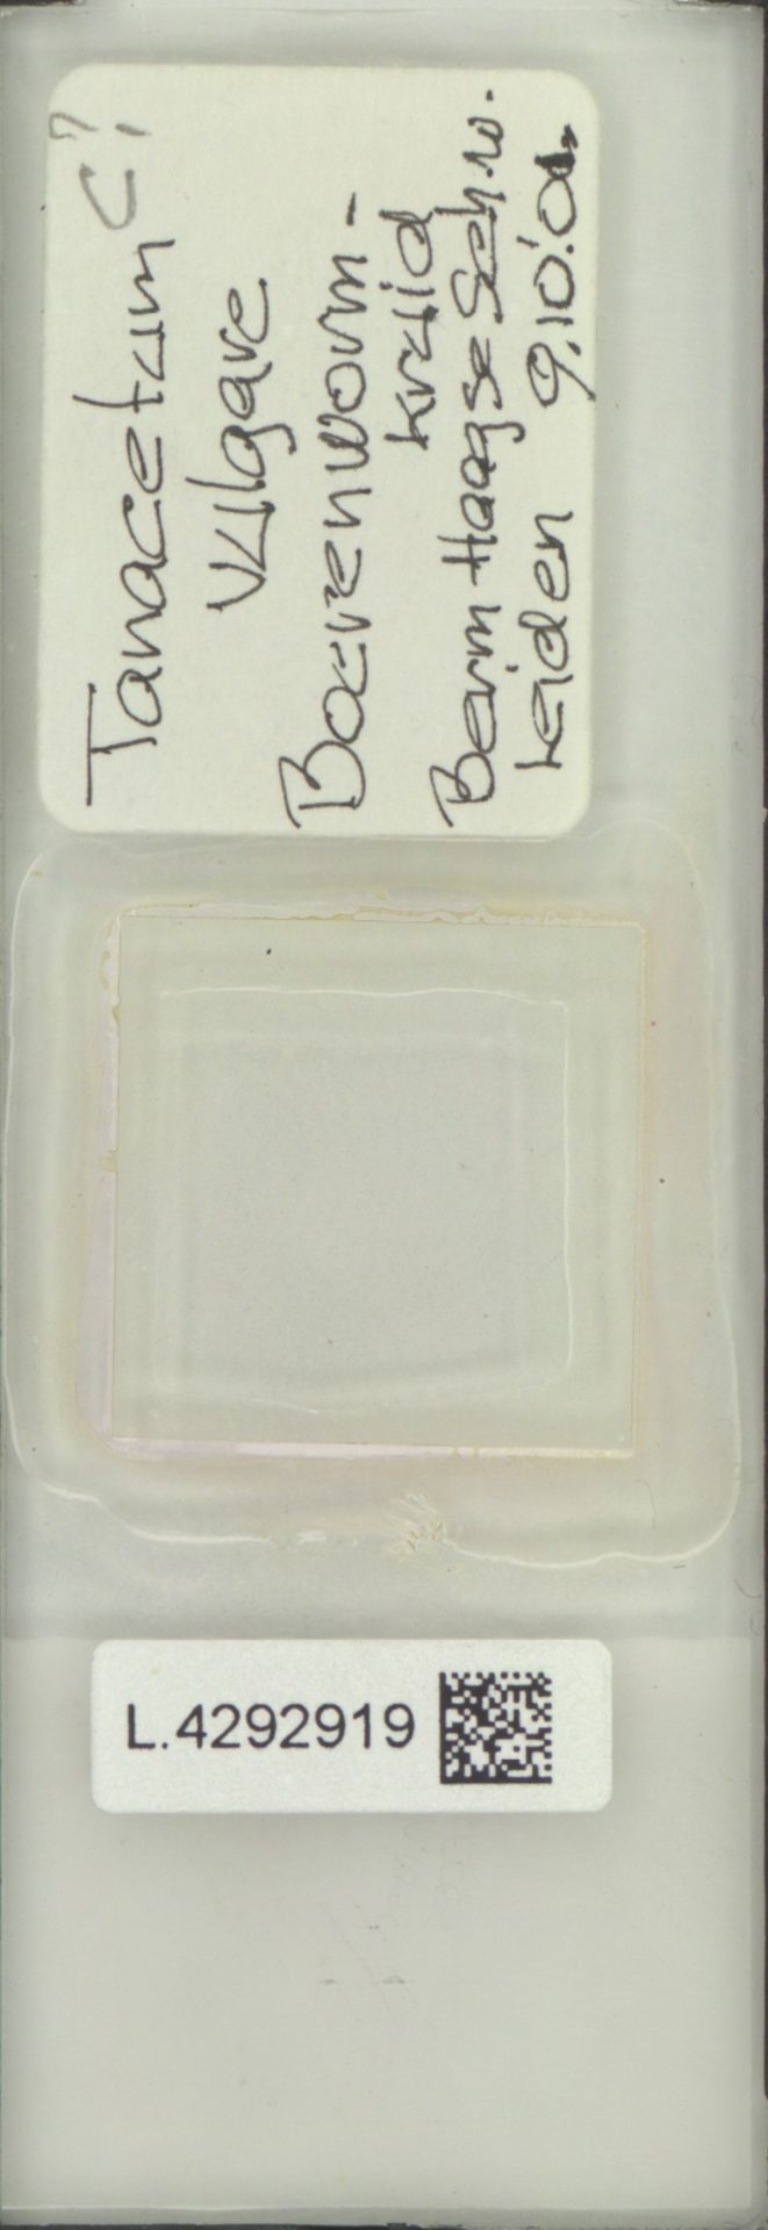 C?
Tanacetum
vulgare
Boerenworm-
kruid
Berm Haagse Schw.
Leiden 9.10.'02
L.4292919